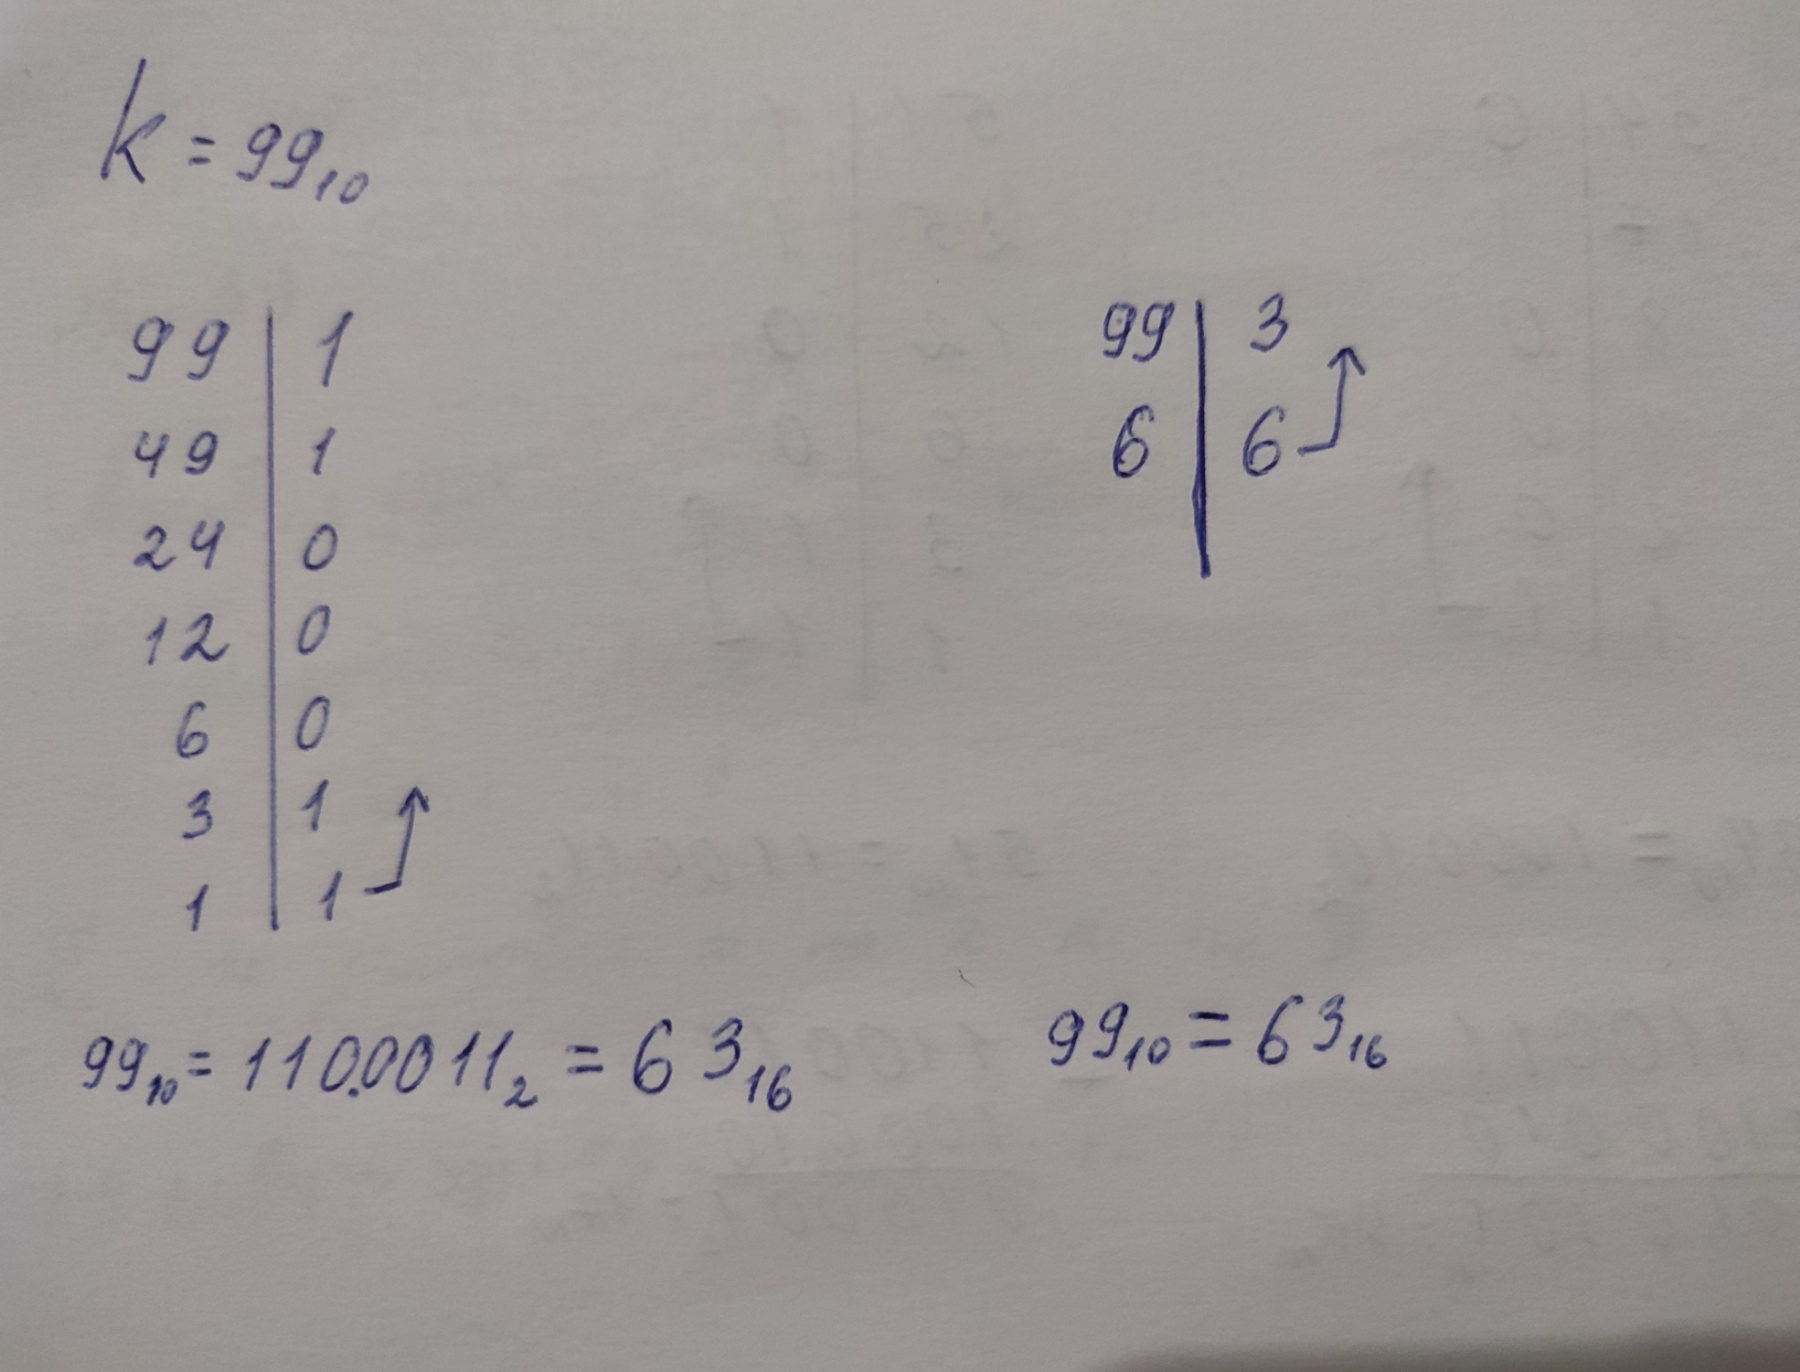 k = 99₁₀
99 | 1
49 | 1
24 | 0
12 | 0
6 | 0
3 | 1
1 | 1
99 | 3
6 | 6
99₁₀ = 110.0011₂ = 63₁₆
99₁₀ = 63₁₆